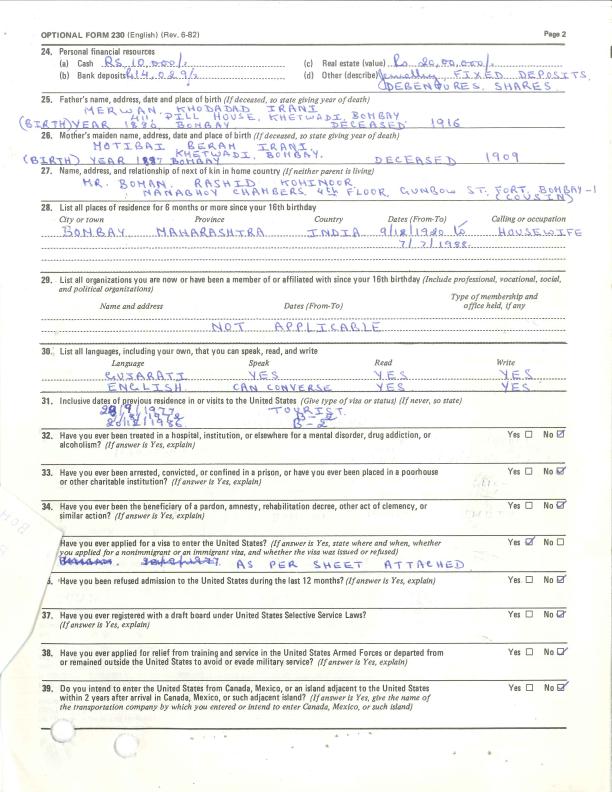 OPTIONAL FORM 230 (English) (Rev. 6-82) Page 2
24. Personal financial resources
(a) Cash RS 10,000/- (c) Real estate (value) Rs 20,00,000/-
(b) Bank deposits 14,029/- (d) Other (describe) Jewellery FIXED DEPOSITS,
DEBENTURES. SHARES
25. Father's name, address, date and place of birth (If deceased, so state giving year of death)
MERWAN KHODADAD IRANI
411, DILL HOUSE, KHETWADI, BOMBAY
(BIRTH) YEAR 1880, BOMBAY DECEASED 1916
26. Mother's maiden name, address, date and place of birth (If deceased, so state giving year of death)
MOTIBAI BERAM IRANI
KHETWADI, BOMBAY.
(BIRTH) YEAR 1887 BOMBAY DECEASED 1909
27. Name, address, and relationship of next of kin in home country (If neither parent is living)
MR. BOMAN RASHID KOHINOOR
NANABHOY CHAMBERS, 4th FLOOR, GUNBOW ST. FORT, BOMBAY-1
(COUSIN)
28. List all places of residence for 6 months or more since your 16th birthday
City or town Province Country Dates (From-To) Calling or occupation
BOMBAY MAHARASHTRA INDIA 9/12/1920 to HOUSEWIFE
7/7/1988
29. List all organizations you are now or have been a member of or affiliated with since your 16th birthday (Include professional, vocational, social,
and political organizations)
Name and address Dates (From-To) Type of membership and
office held, if any
NOT APPLICABLE
30. List all languages, including your own, that you can speak, read, and write
Language Speak Read Write
GUJARATI YES YES YES
ENGLISH CAN CONVERSE YES YES
31. Inclusive dates of previous residence in or visits to the United States (Give type of visa or status) (If never, so state)
28/9/1977 TOURIST
B-2
20/12/1986 B-2
32. Have you ever been treated in a hospital, institution, or elsewhere for a mental disorder, drug addiction, or Yes ☐ No ☑
alcoholism? (If answer is Yes, explain)
33. Have you ever been arrested, convicted, or confined in a prison, or have you ever been placed in a poorhouse Yes ☐ No ☑
or other charitable institution? (If answer is Yes, explain)
34. Have you ever been the beneficiary of a pardon, amnesty, rehabilitation decree, other act of clemency, or Yes ☐ No ☑
similar action? (If answer is Yes, explain)
Have you ever applied for a visa to enter the United States? (If answer is Yes, state where and when, whether Yes ☑ No ☐
you applied for a nonimmigrant or an immigrant visa, and whether the visa was issued or refused)
AS PER SHEET ATTACHED
6. Have you been refused admission to the United States during the last 12 months? (If answer is Yes, explain) Yes ☐ No ☑
37. Have you ever registered with a draft board under United States Selective Service Laws? Yes ☐ No ☑
(If answer is Yes, explain)
38. Have you ever applied for relief from training and service in the United States Armed Forces or departed from Yes ☐ No ☑
or remained outside the United States to avoid or evade military service? (If answer is Yes, explain)
39. Do you intend to enter the United States from Canada, Mexico, or an island adjacent to the United States Yes ☐ No ☑
within 2 years after arrival in Canada, Mexico, or such adjacent island? (If answer is Yes, give the name of
the transportation company by which you entered or intend to enter Canada, Mexico, or such island)